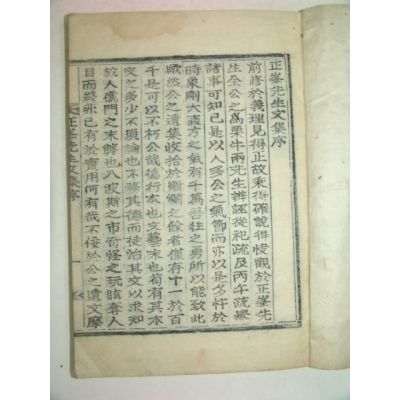 正峯先生文集序
前修於義理見得正故秉得確說得快觀於正峯先
生全公之爲栗牛兩先生辨誣從祀疏及丙午疏槩
諸事可知已是以人多公之氣節而亦以是多忤於
時象剛大直方之氣有千萬吾往之勇所以能致此
歟然公之遺集收拾於斷爛之餘者僅存十一於百
千是可以不朽公哉德行本也文藝末也苟有其本
多少不須論也不務其德而徒治其文以求知
於人儒門之末弊也入波斯之市奇怪之玩眩奪人
目而錢 已有於實用何有哉不佞於公之遺文摩
正峯先生文集序
一